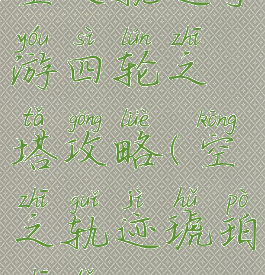 yóu sì lún zhī
游四轮之
tǎ gōng lüè kōng
塔攻略(空
zhī guǐ jì hǔ pò
之轨迹琥珀